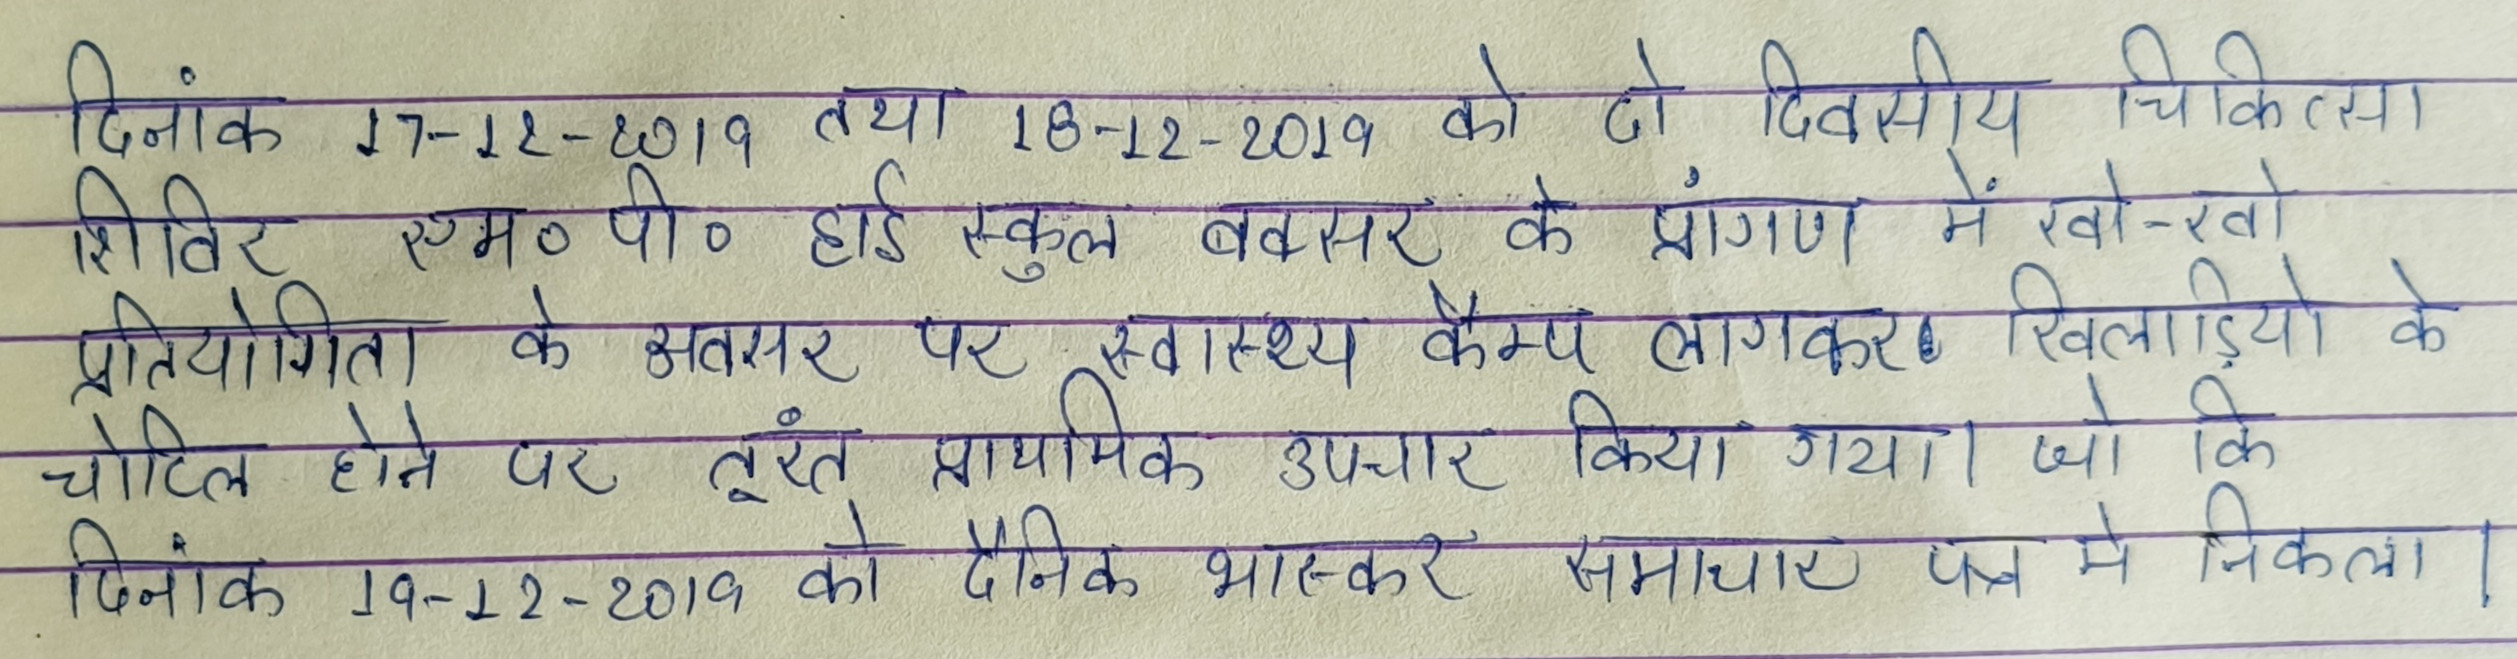 दिनांक 17-12-2019 तथा 18-12-2019 को दो दिवसीय चिकित्सा
शिविर एम० पी० हाई स्कुल बक्सर के प्रांगण में खो-खो
प्रतियोगिता के अवसर पर स्वास्थ्य कैम्प लागकर खिलाड़ियो के
चोटिल होने पर तूरंत प्राथमिक उपचार किया गया। जो कि
दिनांक 19-12-2019 को दैनिक भास्कर समाचार पत्र मे निकला।